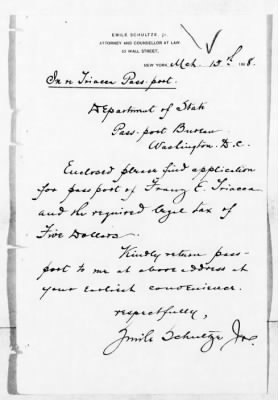 EMILE SCHULTZE, Jr.
ATTORNEY AND COUNSELLOR AT LAW
62 WALL STREET,
NEW YORK, Mch. 15th 1 8.
In re Triacca Pass-port.
Department of State
Pass-port Bureau
Washington D.C.
Enclosed please find application
for passport of Franz E. Triacca
and the required legal tax of
Five Dollars
Kindly return pass-
port to me at above address at
your earliest convenience.
respectfully,
Emile Schultze Jr.